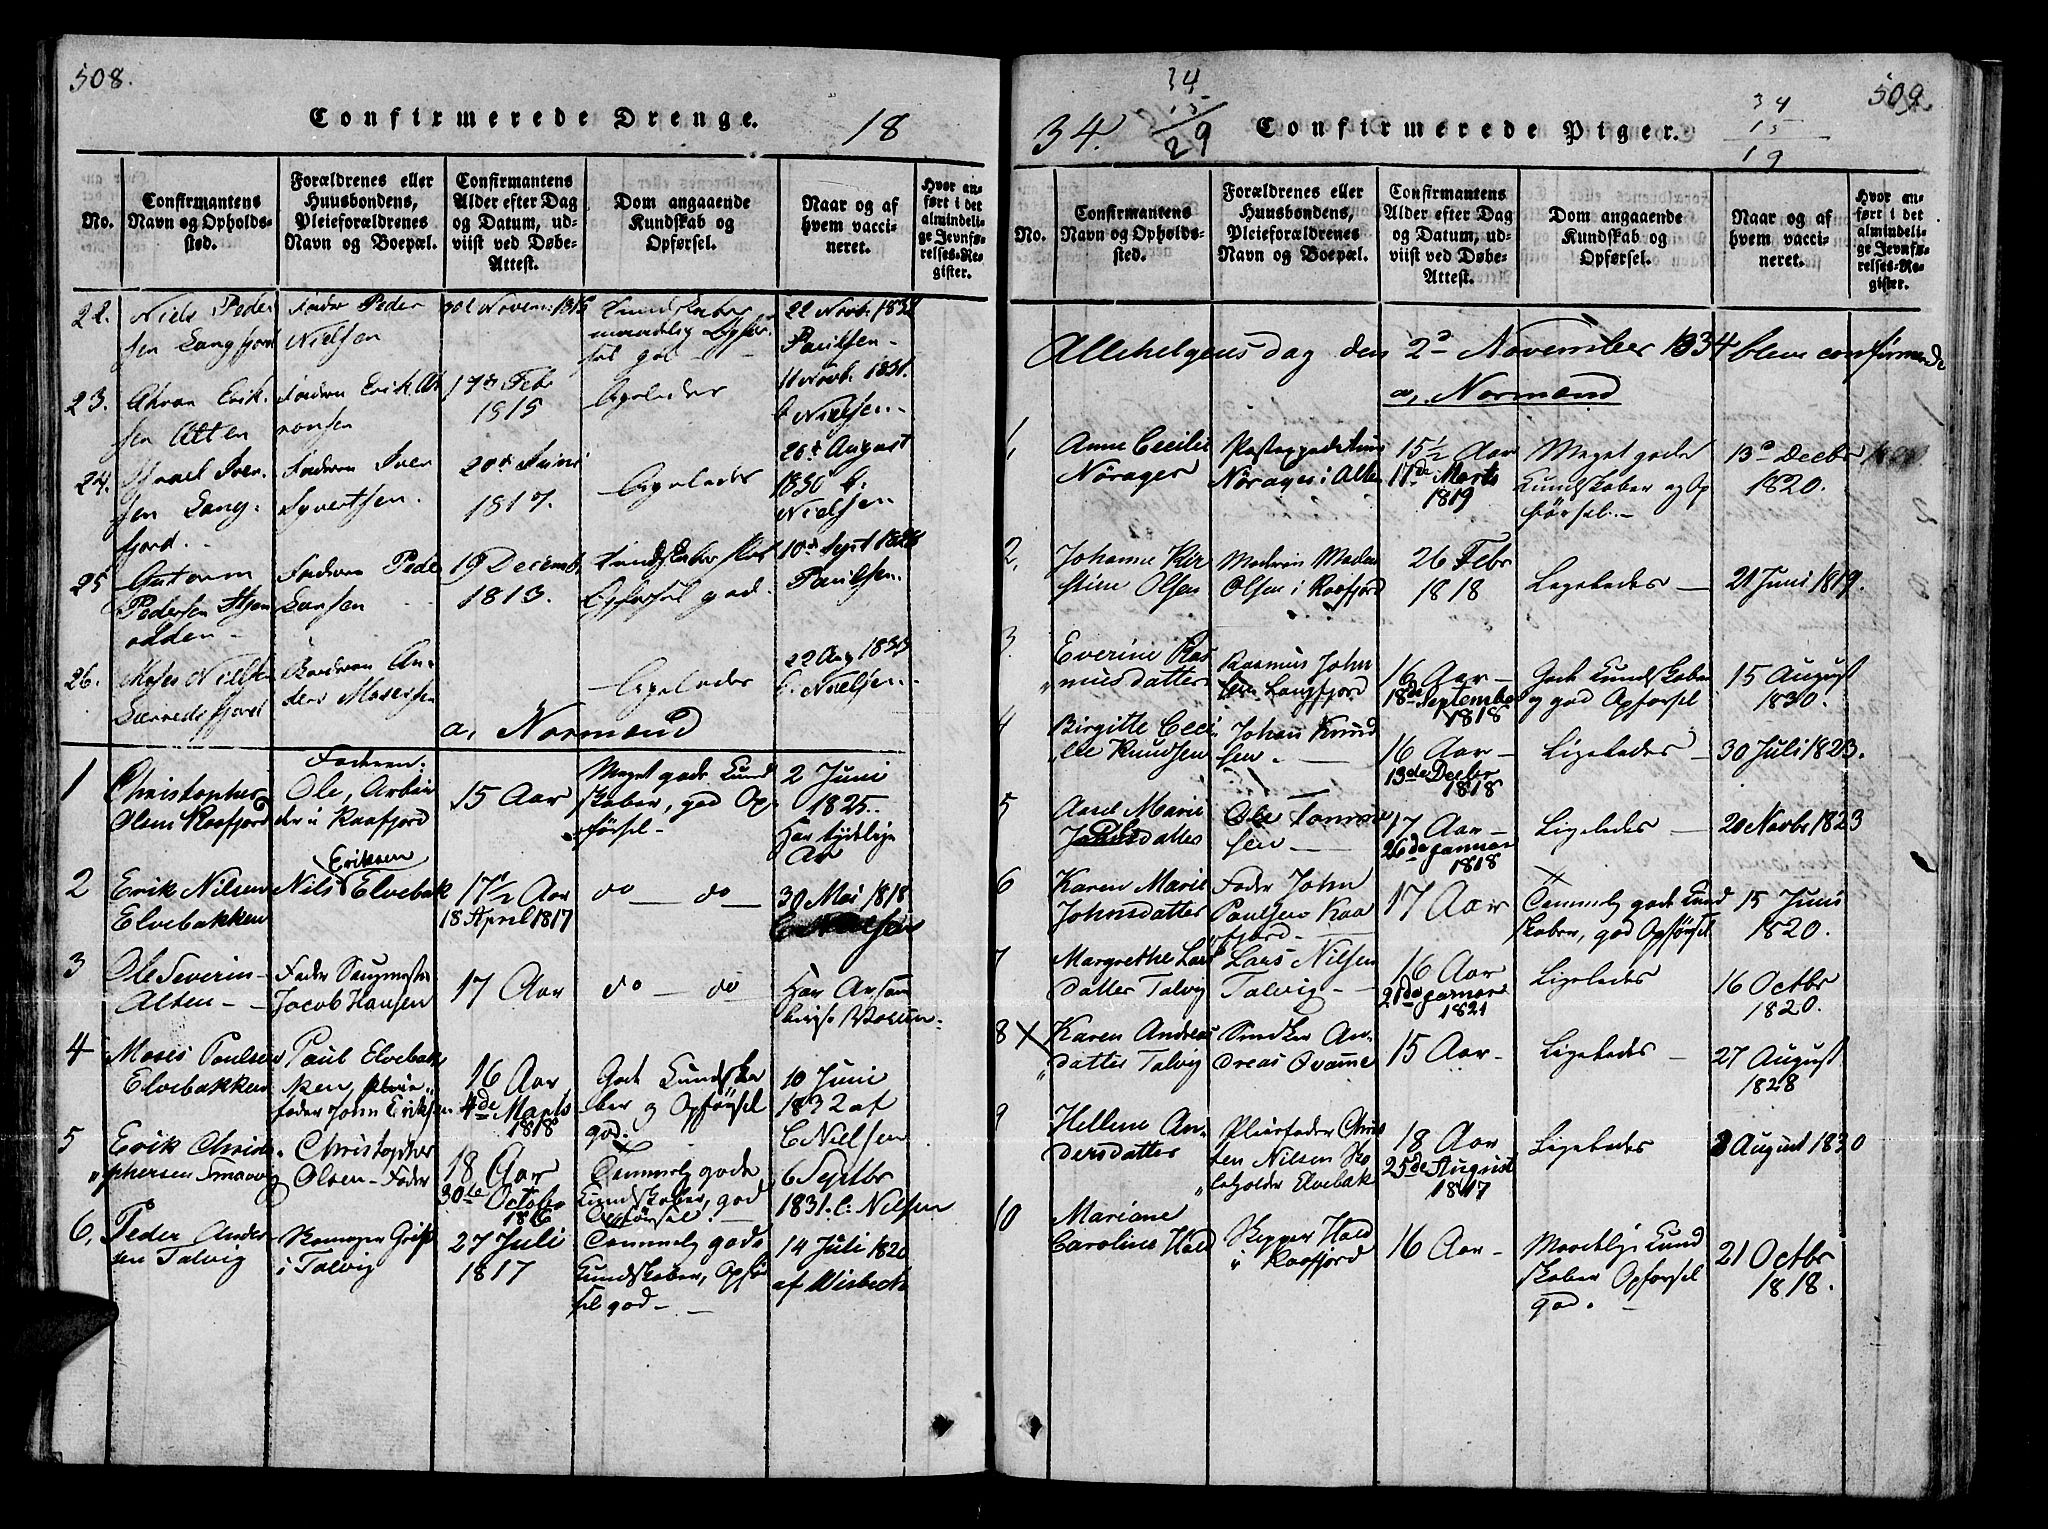 508.
Confirmerede Drenge.
18
No.
Confirmantens Navn og Opholdssted.
Forældrenes eller Huusbondens, Pleieforældrenes Navn og Boepæl.
Confirmantens Alder efter Dag og Datum, udviist ved Døbe-Attest.
Dom angaaende Kundskab og Opførsel.
Naar og af hvem vaccineret.
Hvor anført i det almindelige Jevnførelses-Register.
22. Niels Peder
sen Langfjord
Peder
Nielsen
30te Novem: 1815
Kundskaber
maadelig Opfør
sel god
22 Novb. 1832
Paulsen
23. Ahron Erik
sen Alten
Faderen Erik Ah
ronsen
17de Febr
1815
Ligeledes
11 Novb. 1831.
Nielsen
24. Israel Iver
sen Lang
fjord.
Faderen Iver
Syvertsen
20de Juni
1817.
Ligeledes
26de August
1830 b.
Nielsen
25
Pedersen
odden
Faderen Peder
Larsen
19 Decemb.
1813.
Opførsel god.
10de Sept 1828
Paulsen.
26. Moses Nielsen
Faderen An
ders Mosesen
Ligeledes
22 Aug 1833
C. Nielsen
a, Normænd
1 Christopher
Olsen Kaafjord
Faderen
Ole, Arbei
der i Kaafjord
15 Aar
Meget gode Kund
skaber, god Op
førsel
2 Juni
1825.
Har tydelige
Ar
2 Erik Nilsen
Elvebakken
Nils Eriksen Elvebak
17½ Aar
18 April 1817
do — do —
30 Mai 1818
C Nielsen
3 Ole Severin
Alten
Fader
Jacob Hansen
17 Aar
do — do
Har Ar
4 Moses Paulsen
Elvebakken
Paul Elvebak
ken, Pleie
fader John Eriksen
16 Aar
4de Marts
1818
Gode Kundska
ber og Opførsel
god.
10 Juni
1832 af
C Nielsen
5 Erik Christo
phersen Smaavig
Christopher
Olsen - Fader
18 Aar
30te Octobr
1816
Temmelig gode
Kundskaber, god
Opførsel.
6 Septbr
1831. C: Nilsen
6, Peder Ander
sen Talvig
i Talvig
27 Juli
1817
Temmelig gode
Kundskaber, Opfør
sel god
14 Juli 1820
af Wisbech
34.
34
15
29
Confirmerede Piger.
34
15
19
509.
No.
Confirmantens Navn og Opholdssted.
Forældrenes eller Huusbondens, Pleieforældrenes Navn og Boepæl.
Confirmantens Alder efter Dag og Datum, udviist ved Døbe-Attest.
Dom angaaende Kundskab og Opførsel.
Naar og af hvem vaccineret.
Hvor anført i det almindelige Jevnførelses-Register.
Allehelgens dag den 2d November 1834 bleve confirmerede
a, Normænd
1, Anne Cecilie
Nørager
Postexpediteur
Nørager i Alten
15½ Aar
17de Marts
1819
Meget gode
Kundskaber og Op
førsel.
13de Decbr
1820.
2, Johanne Kir
stine Olsen
Moderen Madm
Olsen i Kaafjord
26 Febr
1818
Ligeledes
21 Juni 1819.
3. Everine Ras
musdatter
Rasmus John
sen Langfjord
16 Aar
18de September
1818
Gode Kundskaber
og god Opførsel
15 August
1830.
4 Birgitte Ceci
lie Knudsen
Johan Knud
sen
16 Aar
13de Decbr
1818
Ligeledes
30 Juli 1823.
5 Marie
datter
Ole
sen
17 Aar
26de Januar
1818
Ligeledes
20 Novbr 1823
6 Karen Marie
Johnsdatter
Fader John
Paulsen Kaa
fjord
17 Aar
Temmelig gode Kund
skaber, god Opførsel
15 Juni
1820.
7 Margrethe Lars
datter Talvig
Lars Nilsen
Talvig
16 Aar
21de Januar
1821
Ligeledes
16 Octbr
1820.
8 X Karen Andreas
datter Talvig
Snedker An
dreas Qvamme
15 Aar
Ligeledes
27 August
1828
9 Hellene An
dersdatter
Pleiefader Chris
ten Nilsen
Elvebak
18 Aar
25de August
1817
Ligeledes
3 August 1830
10 Mariane
Caroline Hald
Skipper Hald
i Kaafjord
16 Aar
Maadelige Kund
skaber Opførsel
god.
21 Octbr
1818.